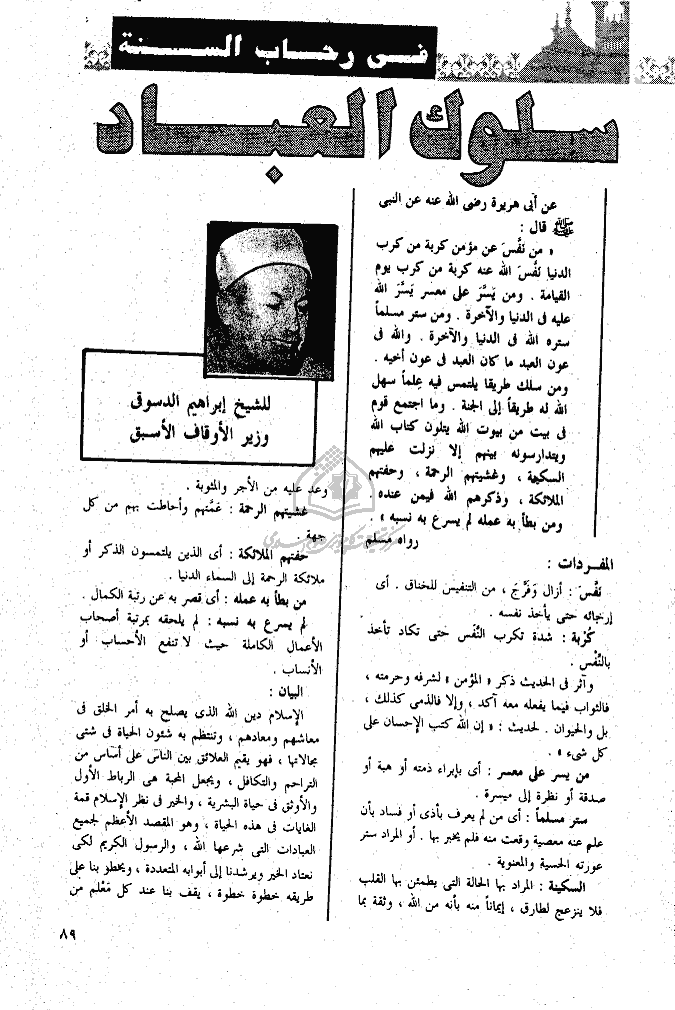 فى رحاب السنة
سلوك العباد
عن أبى هريرة رضى الله عنه عن النبى
ﷺ قال :
« من نَفَّسَ عن مؤمن كربة من كرب
الدنيا نَفَّسَ الله عنه كربة من كرب يوم
القيامة . ومن يَسَّرَ على معسر يَسَّرَ الله
عليه فى الدنيا والآخرة . ومن ستر مسلماً
ستره الله فى الدنيا والآخرة . والله فى
عون العبد ما كان العبد فى عون أخيه .
ومن سلك طريقا يلتمس فيه علماً سهل
الله له طريقاً إلى الجنة . وما اجتمع قوم
فى بيت من بيوت الله يتلون كتاب الله
ويتدارسونه بينهم إلا نزلت عليهم
السكينة ، وغشيتهم الرحمة ، وحفتهم
الملائكة ، وذكرهم الله فيمن عنده .
ومن بطأ به عمله لم يسرع به نسبه » .
رواه مسلم
المفردات :
نَفَّسَ : أزال وَفَرَّجَ ، من التنفيس للخناق . أى
إرخائه حتى يأخذ نفسه .
كُرْبة : شدة تكرب النَّفَس حتى تكاد تأخذ
بالنَّفْس .
وآثر فى الحديث ذكر « المؤمن » لشرفه وحرمته ،
فالثواب فيما يفعله معه آكد ، وإلا فالذمى كذلك ،
بل والحيوان . لحديث : « إن الله كتب الإحسان على
كل شىء » .
من يسر على معسر : أى بإبراء ذمته أو هبة أو
صدقة أو نظرة إلى ميسرة .
ستر مسلماً : أى من لم يعرف بأذى أو فساد بأن
علم عنه معصية وقعت منه فلم يخبر بها . أو المراد ستر
عورته الحسية والمعنوية .
السكينة : المراد بها الحالة التى يطمئن بها القلب
فلا ينزعج لطارق ، إيماناً منه بأنه من الله ، وثقة بما
للشيخ إبراهيم الدسوق
وزير الأوقاف الأسبق
وعد عليه من الأجر والمثوبة .
غشيتهم الرحمة : عَمَّتهم وأحاطت بهم من كل
جهة .
حفتهم الملائكة : أى الذين يلتمسون الذكر أو
ملائكة الرحمة إلى السماء الدنيا .
من بطأ به عمله : أى قصر به عن رتبة الكمال .
لم يسرع به نسبه : لم يلحقه بمرتبة أصحاب
الأعمال الكاملة حيث لا تنفع الأحساب أو
الأنساب .
البيان :
الإسلام دين الله الذى يصلح به أمر الخلق فى
معاشهم ومعادهم ، وتنتظم به شئون الحياة فى شتى
مجالاتها ، فهو يقيم العلائق بين الناس على أساس من
التراحم والتكافل ، ويجعل المحبة هى الرباط الأول
والأوثق فى حياة البشرية ، والخير فى نظر الإسلام قمة
الغايات فى هذه الحياة ، وهو المقصد الأعظم لجميع
العبادات التى شرعها الله ، والرسول الكريم لكى
نعتاد الخير ويرشدنا إلى أبوابه المتعددة ، ويخطو بنا على
طريقه خطوة خطوة ، يقف بنا عند كل مَعْلم من
٨٩